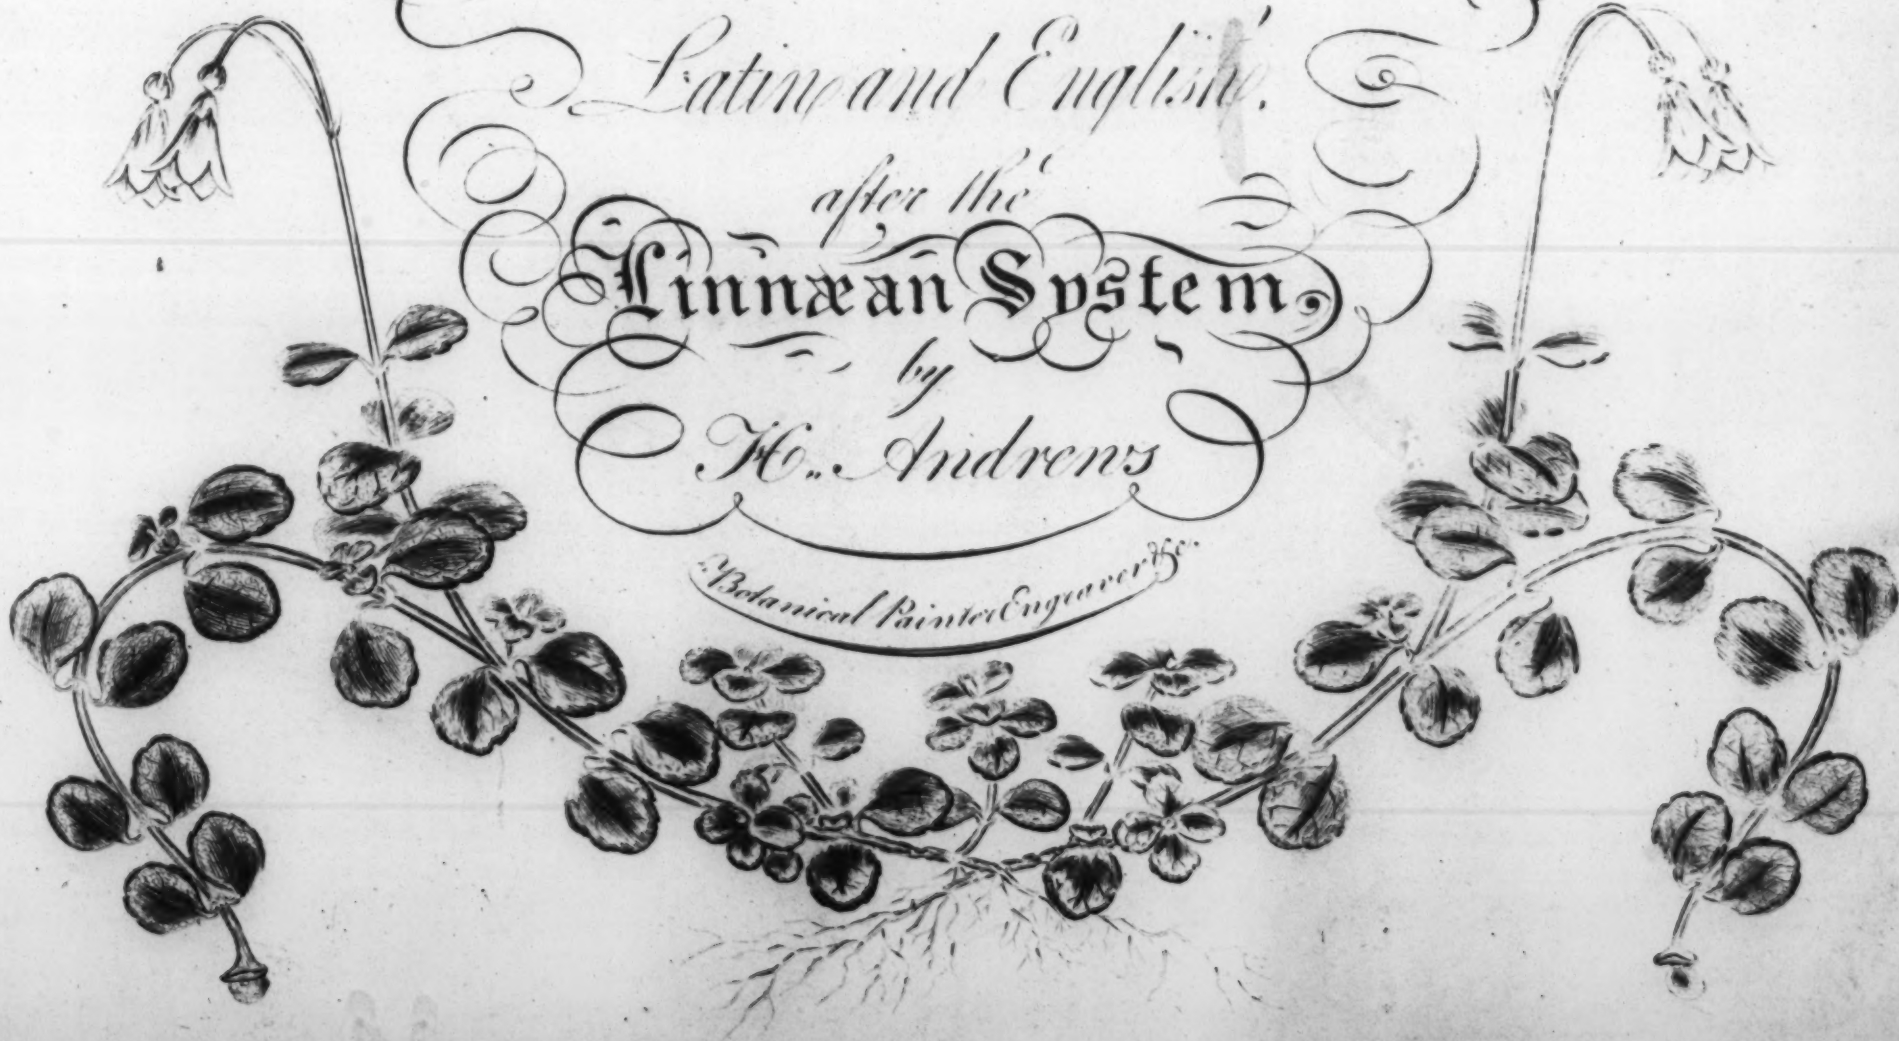 Latin and English.
after the
Linnæan System,
by
H. Andrews
Botanical Painter Engraver &c.